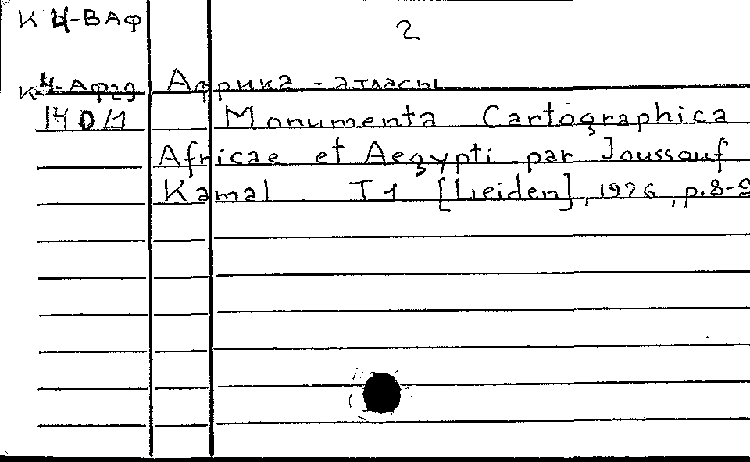 К Ч-ВАФ
2
К Ч-Аф29 Африка - атласы
14 D/1 Monumenta Cartographica
Africae et Aegypti par Joussouf
Kamal. T1 [Leiden], 1926, p. 8-9